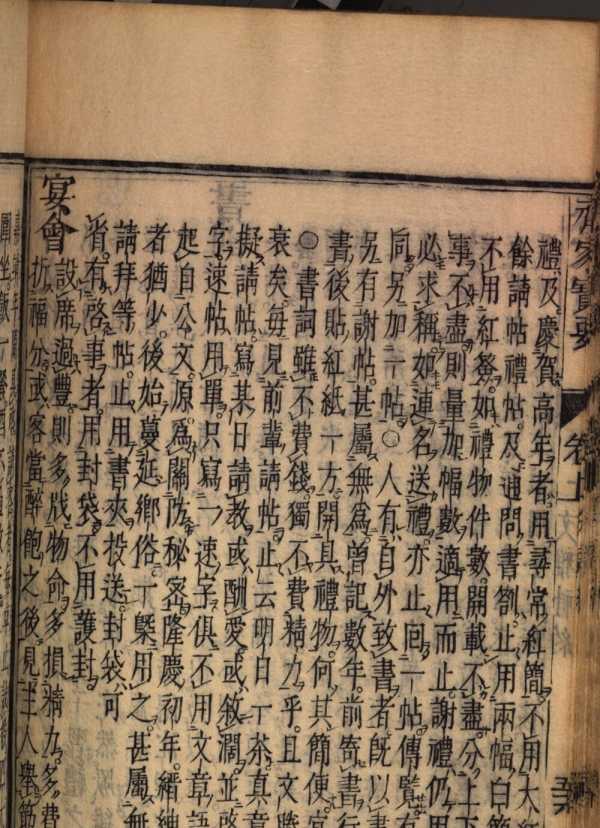 齊家寶要
卷上
禮及慶賀高年者用尋常紅簡不用大紅
餘請帖禮帖及通問書劄止用兩幅白簡
不用紅簽如禮物件數開載不盡分上下
事不盡則量加幅數適用而止謝禮仍用
必求稱如連名送禮亦止回一帖傳覽有
同另加一帖○人有自外致書者旣以書
另有謝帖甚屬無爲曾記數年前寄書行
書後貼紅紙一方開具禮物何其簡便宜
○書詞雖不費錢獨不費精力乎且文勝
衰矣每見前輩請帖止云明日一茶真率
擬請帖寫某日請教或酬愛或敘濶並
字速帖用單只寫一速字俱不用文章語
起自公文原爲關防秘密隆慶初年縉紳
者猶少後始蔓延鄉俗一槩用之甚屬無
請拜等帖止用書夾投送封袋可
省有啓事者用封袋不用護封
宴會
設席過豐則多戕物命多損精力多費
折福分或客當醉飽之後見主人舉筯